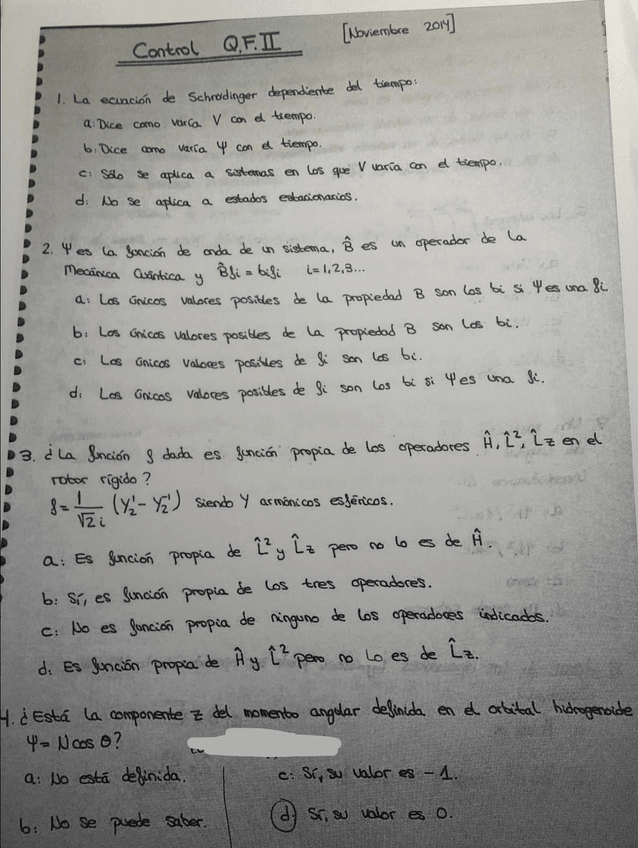 Control Q.F.II [Noviembre 2014]
1. La ecuación de Schrodinger dependiente del tiempo:
a: Dice como varía V con el tiempo.
b: Dice como varía Ψ con el tiempo.
c: Sólo se aplica a sistemas en los que V varía con el tiempo.
d: No se aplica a estados estacionarios.
2. Ψ es la función de onda de un sistema, B̂ es un operador de la
Mecánica Cuántica y B̂fi = bifi i=1,2,3...
a: Los únicos valores posibles de la propiedad B son los bi si Ψ es una fi
b: Los únicos valores posibles de la propiedad B son los bi.
c: Los únicos valores posibles de fi son los bi.
d: Los únicos valores posibles de fi son los bi si Ψ es una fi.
3. ¿La función f dada es función propia de los operadores Ĥ, L̂², L̂z en el
rotor rígido?
f = 1/√2 i (Y₂¹ - Y₂⁻¹) siendo Y armónicos esféricos.
a: Es función propia de L̂² y L̂z pero no lo es de Ĥ.
b: Sí, es función propia de los tres operadores.
c: No es función propia de ninguno de los operadores indicados.
d: Es función propia de Ĥ y L̂² pero no lo es de L̂z.
4. ¿Está la componente z del momento angular definida en el orbital hidrogenoide
Ψ = N cos θ?
a: No está definida. c: Sí, su valor es -1.
b: No se puede saber. d: Sí, su valor es 0.